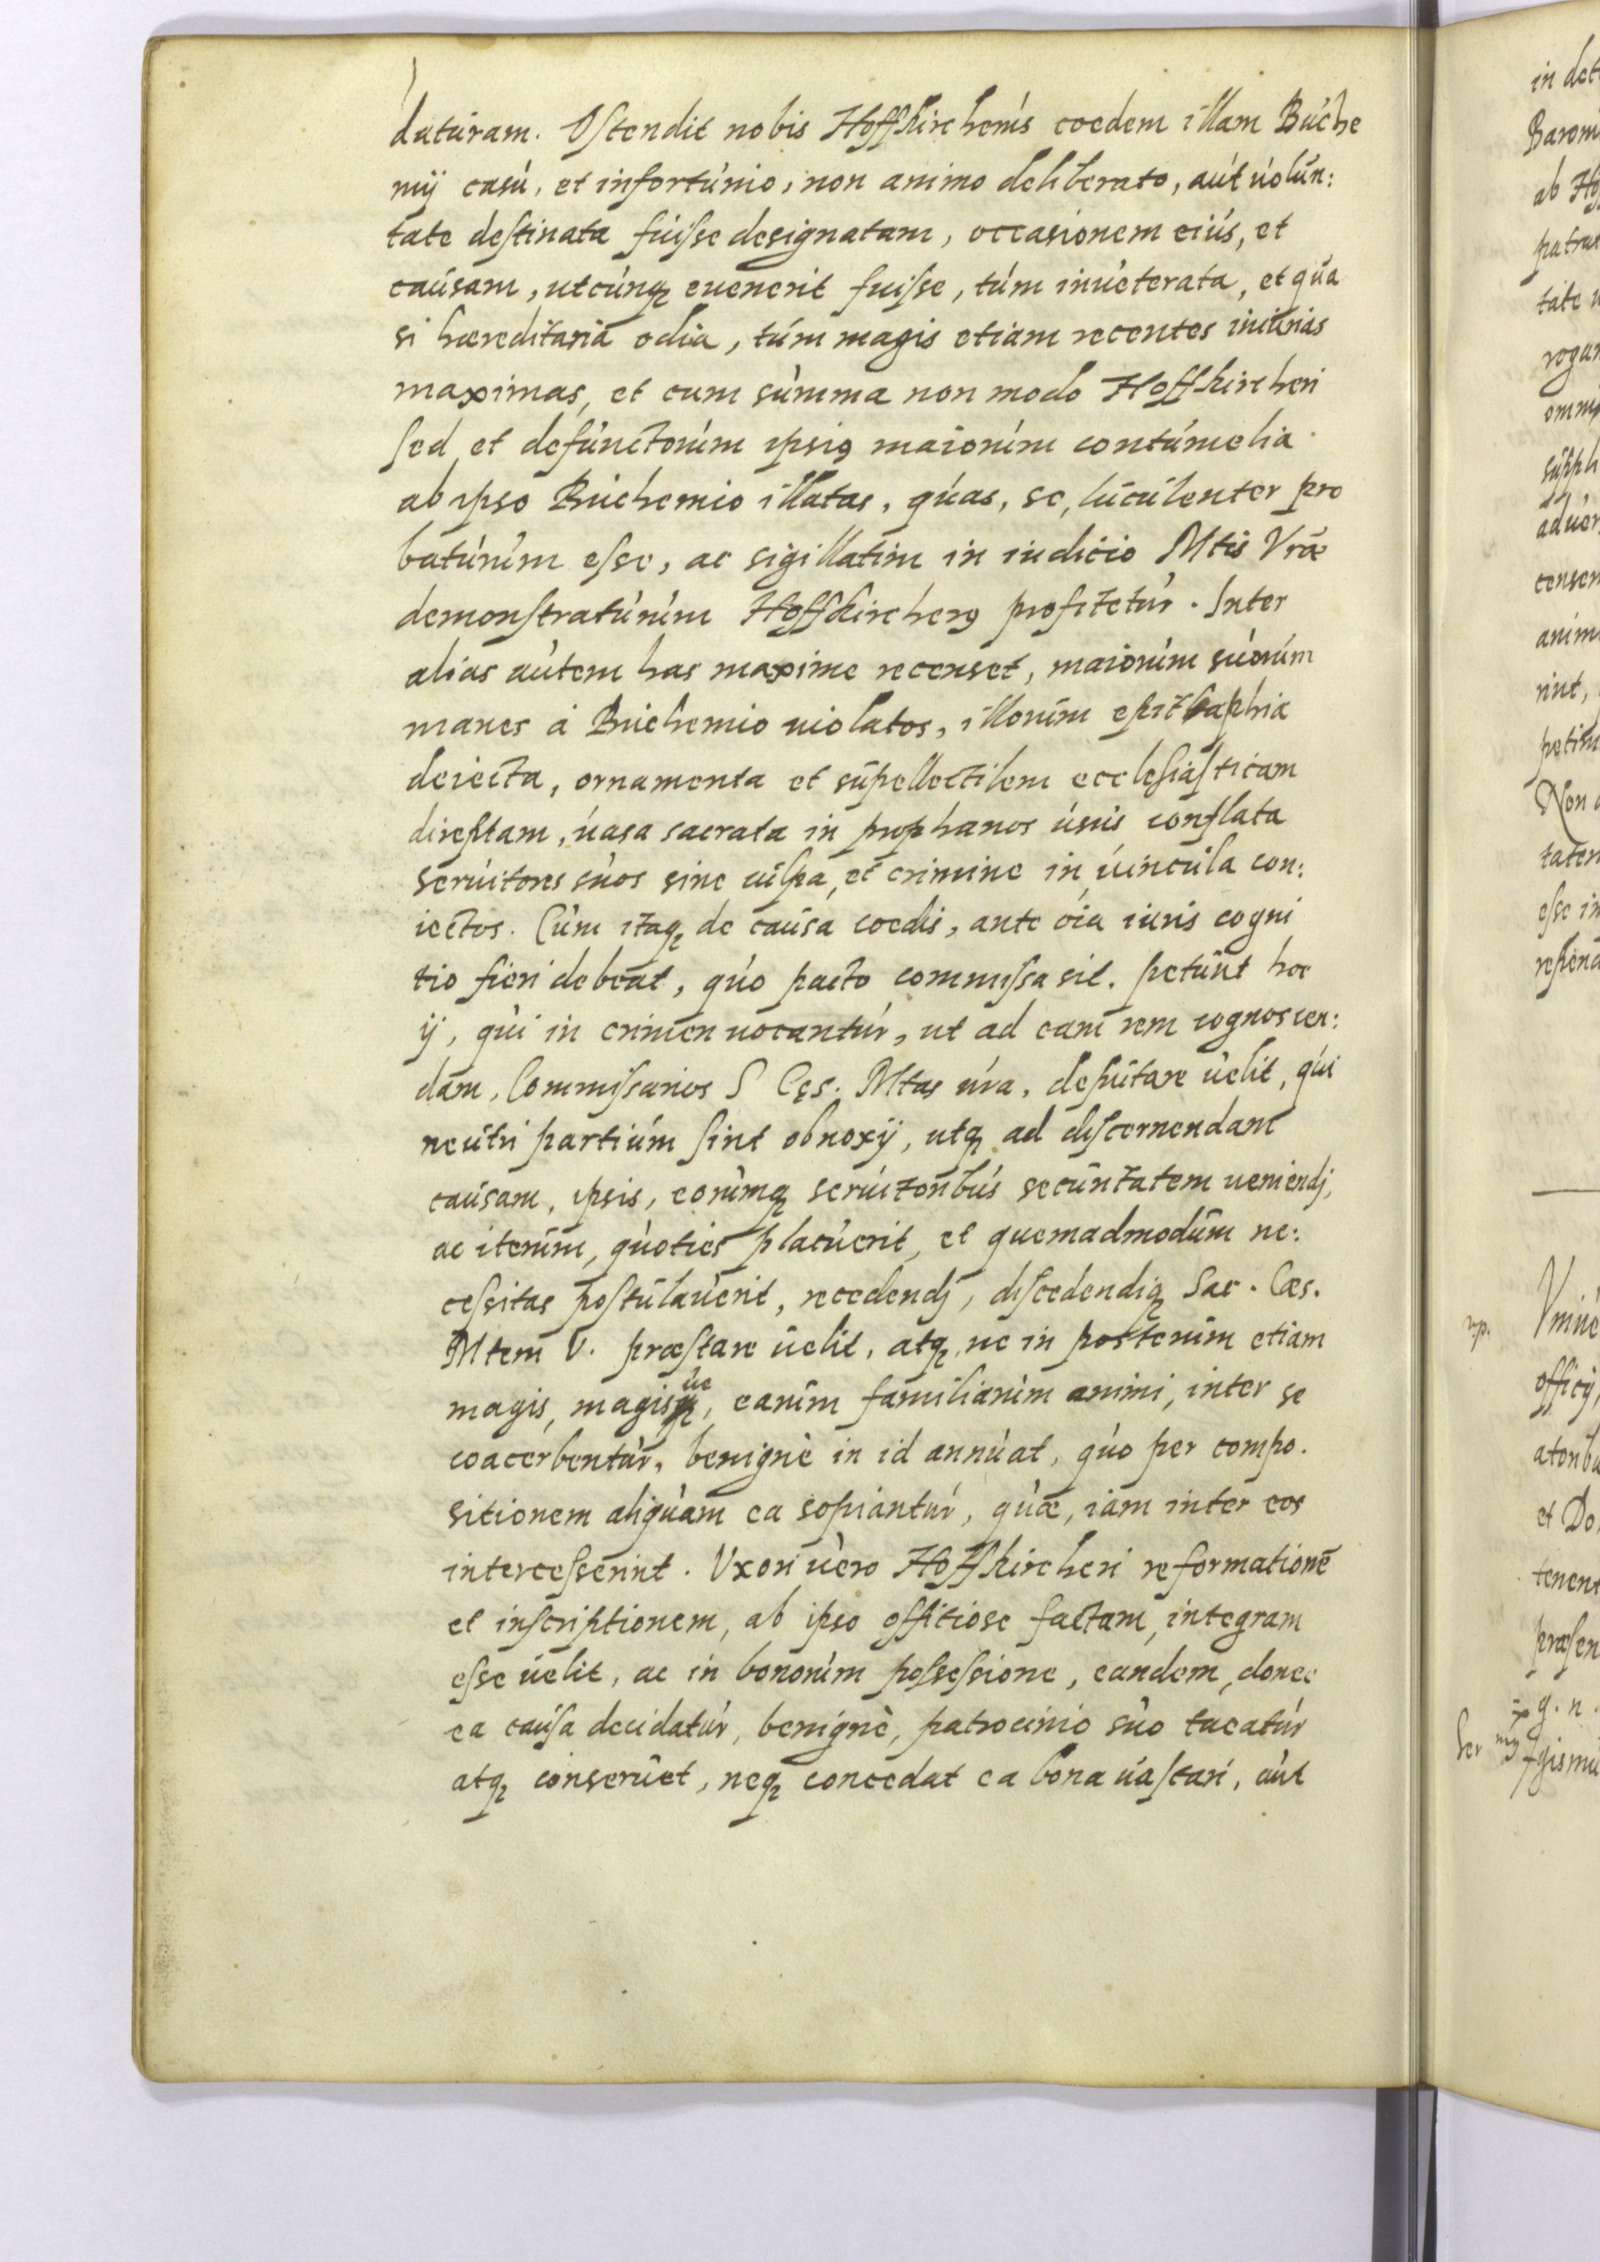 daturam. Ostendit nobis Hoffkircherus coedem illam Buche
mij casu, et infortunio, non animo deliberato, aut uolun:
tate destinata fuisse designatam, occasionem eius, et
causam, utcunq euenerit fuisse, tum inueterata, et qua
si hæreditaria odia, tum magis etiam recentes iniurias
maximas, et cum summa non modo Hoffkircheri
sed et defunctorum ipsiq maiorum contumelia
ab ipso Buchemio illatas, quas, se, luculenter pro
baturum esse, ac sigillatim in iudicio Mtis Vræ
demonstraturum Hoffkircherq profitetur. Inter
alias autem has maxime recenset, maiorum suorum
manes à Buchemio uiolatos, illorum epithaphia
deiecta, ornamenta et supellectilem ecclesiasticam
direptam, uasa sacrata in prophanos usus conflata
seruitores suos sine culpa, et crimine in uincula con:
iectos. Cum itaq de causa coedis, ante oia iuris cogni
tio fieri debeat, quo pacto commissa sit. petunt hoc
ij, qui in crimen uocantur, ut ad eam rem cognoscen:
dam, Commissarios S Cęs. Mtas ura, deputare uelit, qui
neutri partium sint obnoxij, utq ad discernendam
causam, ipsis, eorumq seruitoribus securitatem ueniendj,
ac iterum, quoties placuerit, et quemadmodum ne:
cessitas postulauerit, recedendj, discedendiq Sac. Cæs.
Mtem V. præstare uelit, atq ne in posterum etiam
magis, magisue, earum familiarum animi, inter se
coacerbentur, benignè in id annuat, quo per compo.
sitionem aliquam ea sopiantur, quæ, iam inter eos
intercesserint. Uxori uero Hoffkircheri reformationē
et inscriptionem, ab ipso offitiose factam, integram
esse uelit, ac in bonorum possessione, eandem, donec
ea causa decidatur, benignè, patrocinio suo tueatur
atq conseruet, neq concedat ea bona uastari, aut